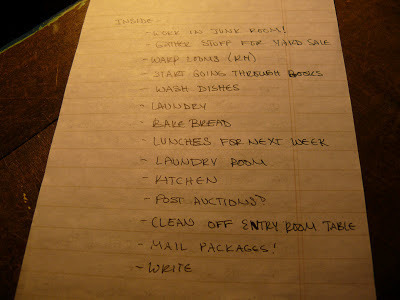 INSIDE
- WORK IN JUNK ROOM!
- GATHER STUFF FOR YARD SALE
- WARP LOOMS (RH)
- START GOING THROUGH BOOKS
- WASH DISHES
- LAUNDRY
- BAKE BREAD
- LUNCHES FOR NEXT WEEK
- LAUNDRY ROOM
- KITCHEN
- POST AUCTIONS?
- CLEAN OFF ENTRY ROOM TABLE
- MAIL PACKAGES!
- WRITE